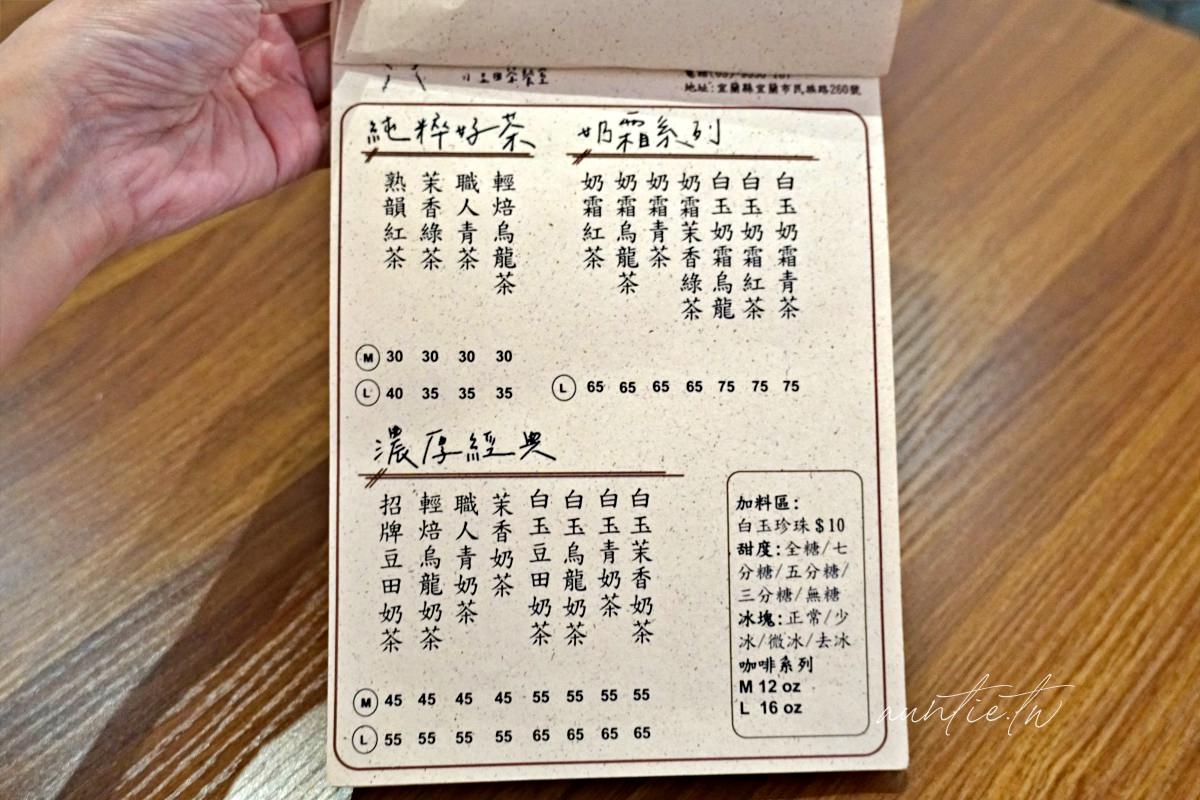 小豆田茶餐室
地址:宜蘭縣宜蘭市民族路260號
純粹好茶
熟韻紅茶
茉香綠茶
職人青茶
輕焙烏龍茶
M 30 30 30 30
L 40 35 35 35
奶霜系列
奶霜紅茶
奶霜烏龍茶
奶霜青茶
奶霜茉香綠茶
白玉奶霜烏龍
白玉奶霜紅茶
白玉奶霜青茶
L 65 65 65 65 75 75 75
濃厚經典
招牌豆田奶茶
輕焙烏龍奶茶
職人青奶茶
茉香奶茶
白玉豆田奶茶
白玉烏龍奶茶
白玉青奶茶
白玉茉香奶茶
M 45 45 45 45 55 55 55 55
L 55 55 55 55 65 65 65 65
加料區:
白玉珍珠$10
甜度:全糖/七
分糖/五分糖/
三分糖/無糖
冰塊:正常/少
冰/微冰/去冰
咖啡系列
M 12 oz
L 16 oz
auntie.tw